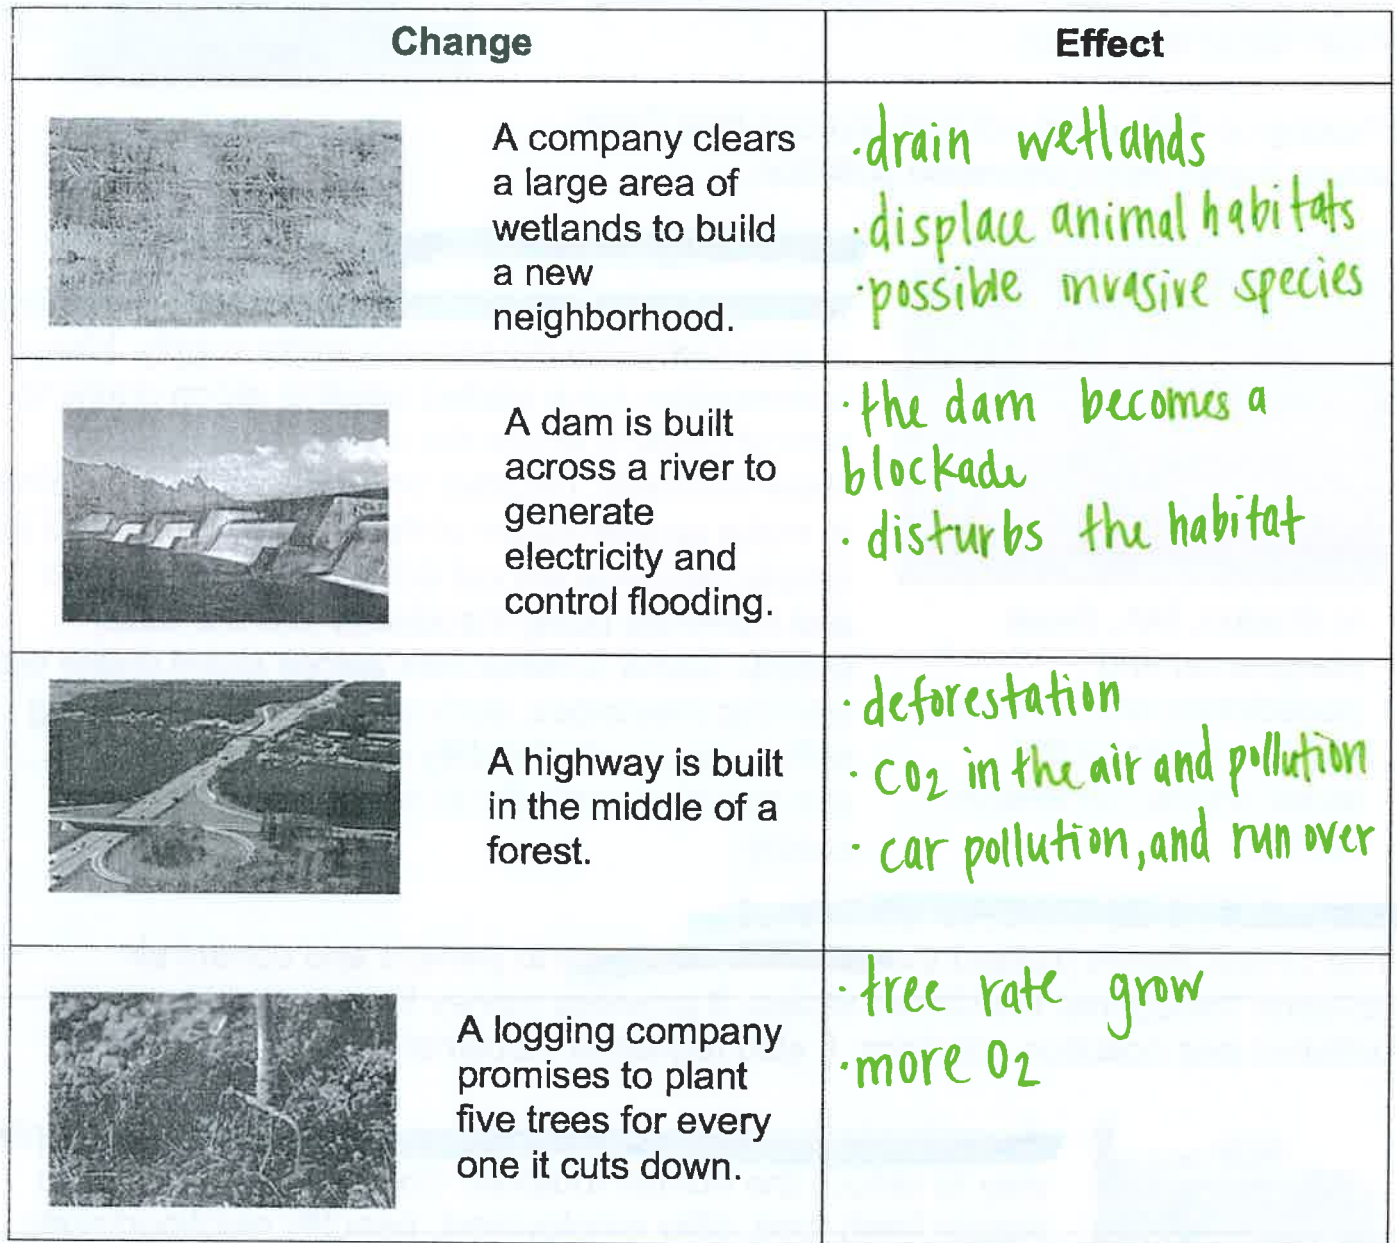 Change
Effect
A company clears
a large area of
wetlands to build
a new
neighborhood.
·drain wetlands
·displace animal habitats
·possible invasive species
A dam is built
across a river to
generate
electricity and
control flooding.
·the dam becomes a
blockade
·disturbs the habitat
A highway is built
in the middle of a
forest.
·deforestation
·CO2 in the air and pollution
·car pollution, and run over
A logging company
promises to plant
five trees for every
one it cuts down.
·tree rate grow
·more O2